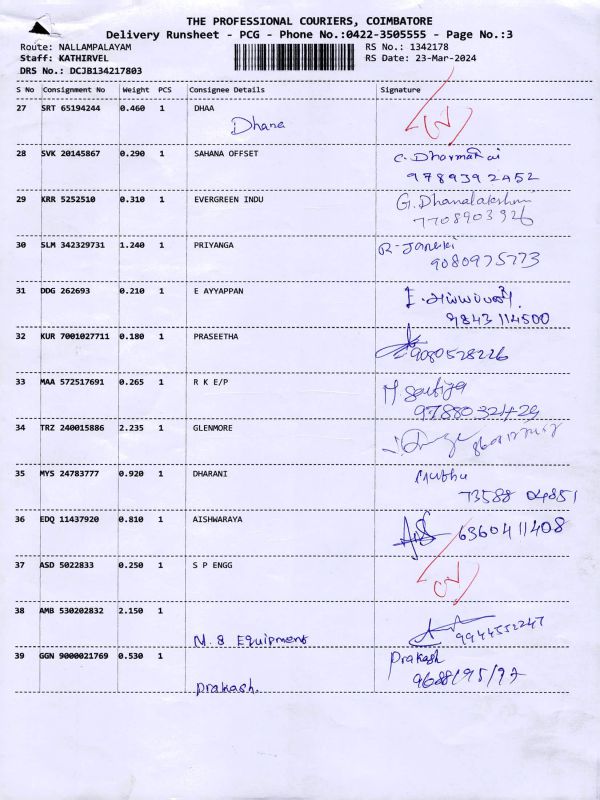 THE PROFESSIONAL COURIERS, COIMBATORE
Delivery Runsheet - PCG - Phone No.:0422-3505555 - Page No.:3
Route: NALLAMPALAYAM RS No.: 1342178
Staff: KATHIRVEL RS Date: 23-Mar-2024
DRS No.: DCJB134217803
S No Consignment No Weight PCS Consignee Details Signature
27 SRT 65194244 0.460 1 DHAA
Dhana
28 SVK 20145867 0.290 1 SAHANA OFFSET
9789392452
29 KRR 5252510 0.310 1 EVERGREEN INDU G. Dhanalakshmi
7708903926
30 SLM 342329731 1.240 1 PRIYANGA R-Janeki
9080975773
31 DDG 262693 0.210 1 E AYYAPPAN
9843114500
32 KUR 7001027711 0.180 1 PRASEETHA
9080528226
33 MAA 572517691 0.265 1 R K E/P
9788032429
34 TRZ 240015886 2.235 1 GLENMORE
35 MYS 24783777 0.920 1 DHARANI Prubhu
73588 04851
36 EDQ 11437920 0.810 1 AISHWARAYA 6360411408
37 ASD 5022833 0.250 1 S P ENGG
38 AMB 530202832 2.150 1
M. S Equipment 9944552247
39 GGN 9000021769 0.530 1 Prakash
Prakash.